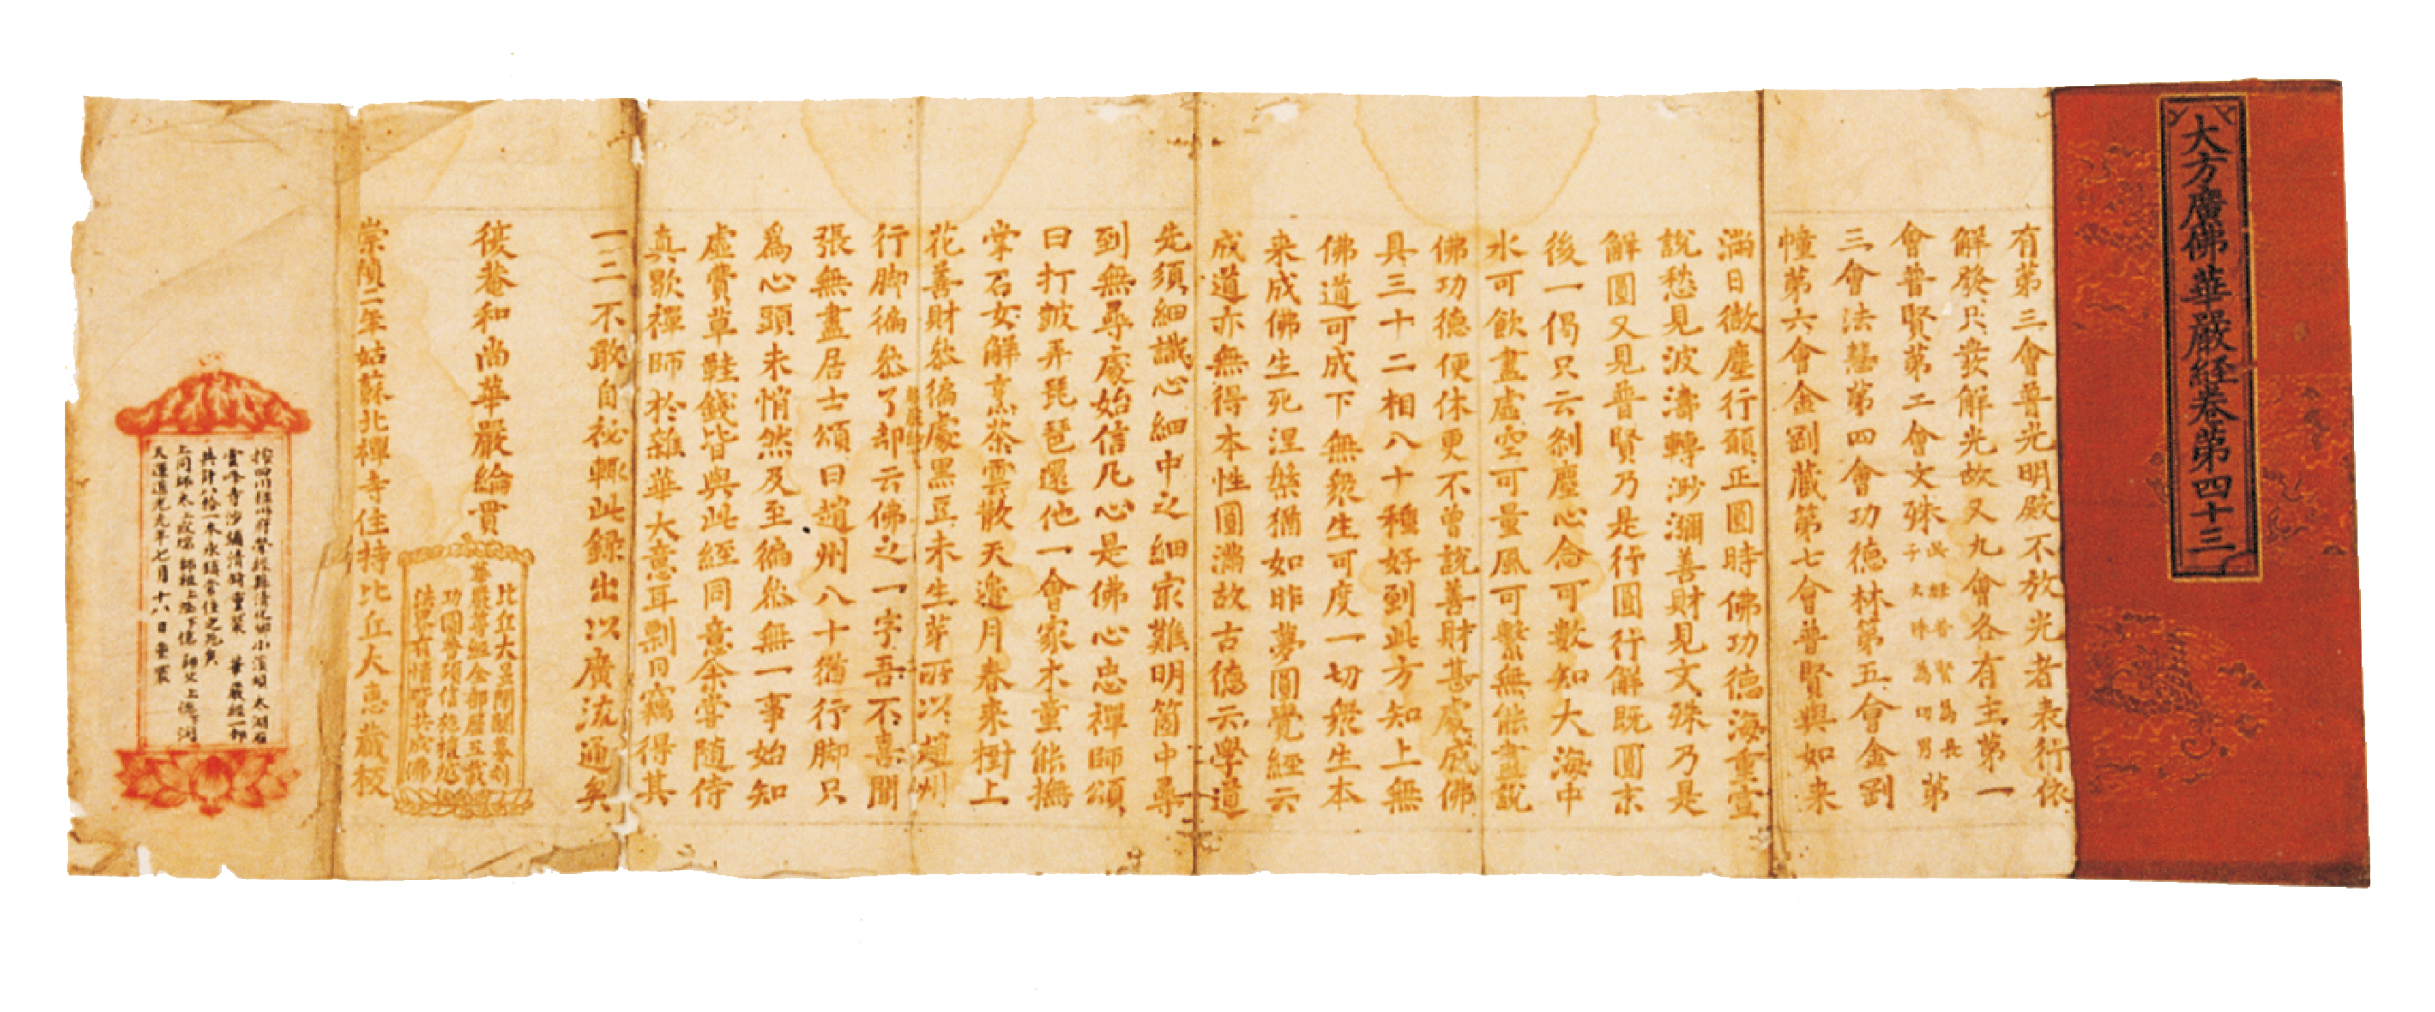 大方廣佛華嚴經卷第四十三
有第三會普光明殿不放光者表行依
解發只發解光故又九會各有主第一
會普賢第二會文殊此經普賢為長子文殊為切男第
三會法慧第四會功德林第五會金剛
幢第六會金剛藏第七會普賢與如來
滿日徵塵行願正圓時佛功德海重宣
說愁見波濤轉渺瀰善財見文殊乃是
解圓又見普賢乃是行圓行解既圓末
後一偈只云刹塵心念可數知大海中
水可飲盡虛空可量風可繫無能盡說
佛功德便休更不曾說善財甚處成佛
具三十二相八十種好到此方知上無
佛道可成下無衆生可度一切衆生本
来成佛生死涅槃猶如昨夢圓覺經云
成道亦無得本性圓滿故古德云學道
先須細識心細中之細家難明箇中尋
到無尋處始信凡心是佛心忠禪師頌
曰打皷弄琵琶還他一會家木童能撫
掌石女解烹茶雲散天邊月春来樹上
花善財叅徧處黑豆未生芽所以趙州
行脚徧叅了却云佛之一字吾不喜聞
張無盡居士頌曰趙州八十猶行脚只
爲心頭未悄然及至徧叅無一事始知
虛費草鞋錢皆與此經同意余甞随侍
真歇禪師於雜華大意耳剽目竊得其
一二不敢自祕輒此録出以廣流通矣
復菴和尚華嚴綸貫
比丘大
華嚴等經全部
功圓
法界有情皆共成佛
崇禎二年姑蘇北禪寺住持比丘大惠藏板
按四川
寺沙彌清 華嚴經一部
共計八拾一本永鎮常住之
上同師太上 師祖上 師父上
天運道光元年七月十八日